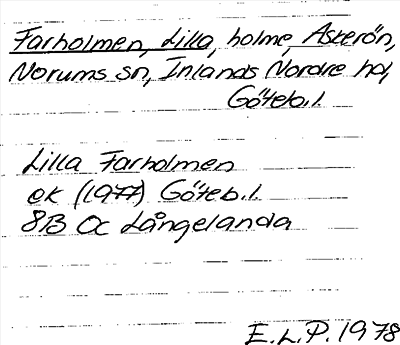 Farholmen, Lilla, holme, Askerön,
Norums sn, Inlands Nordre hd,
Göteb.l.
Lilla Farholmen
ek (1977) Göteb.l.
8B Oc Långelanda
E.L.P. 1978